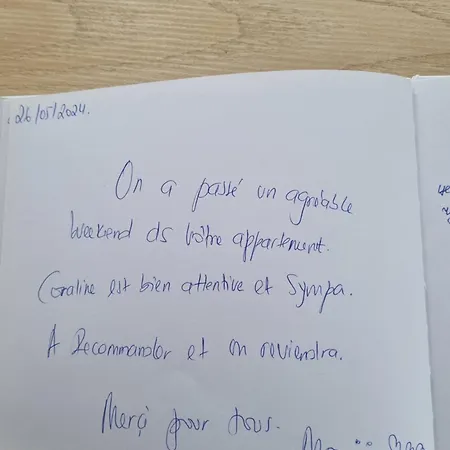 26/05/2024.
On a passé un agréable
weekend ds vôtre appartement.
Coraline est bien attentive et Sympa.
A Recommander et on reviendra.
Merçi pour tous.